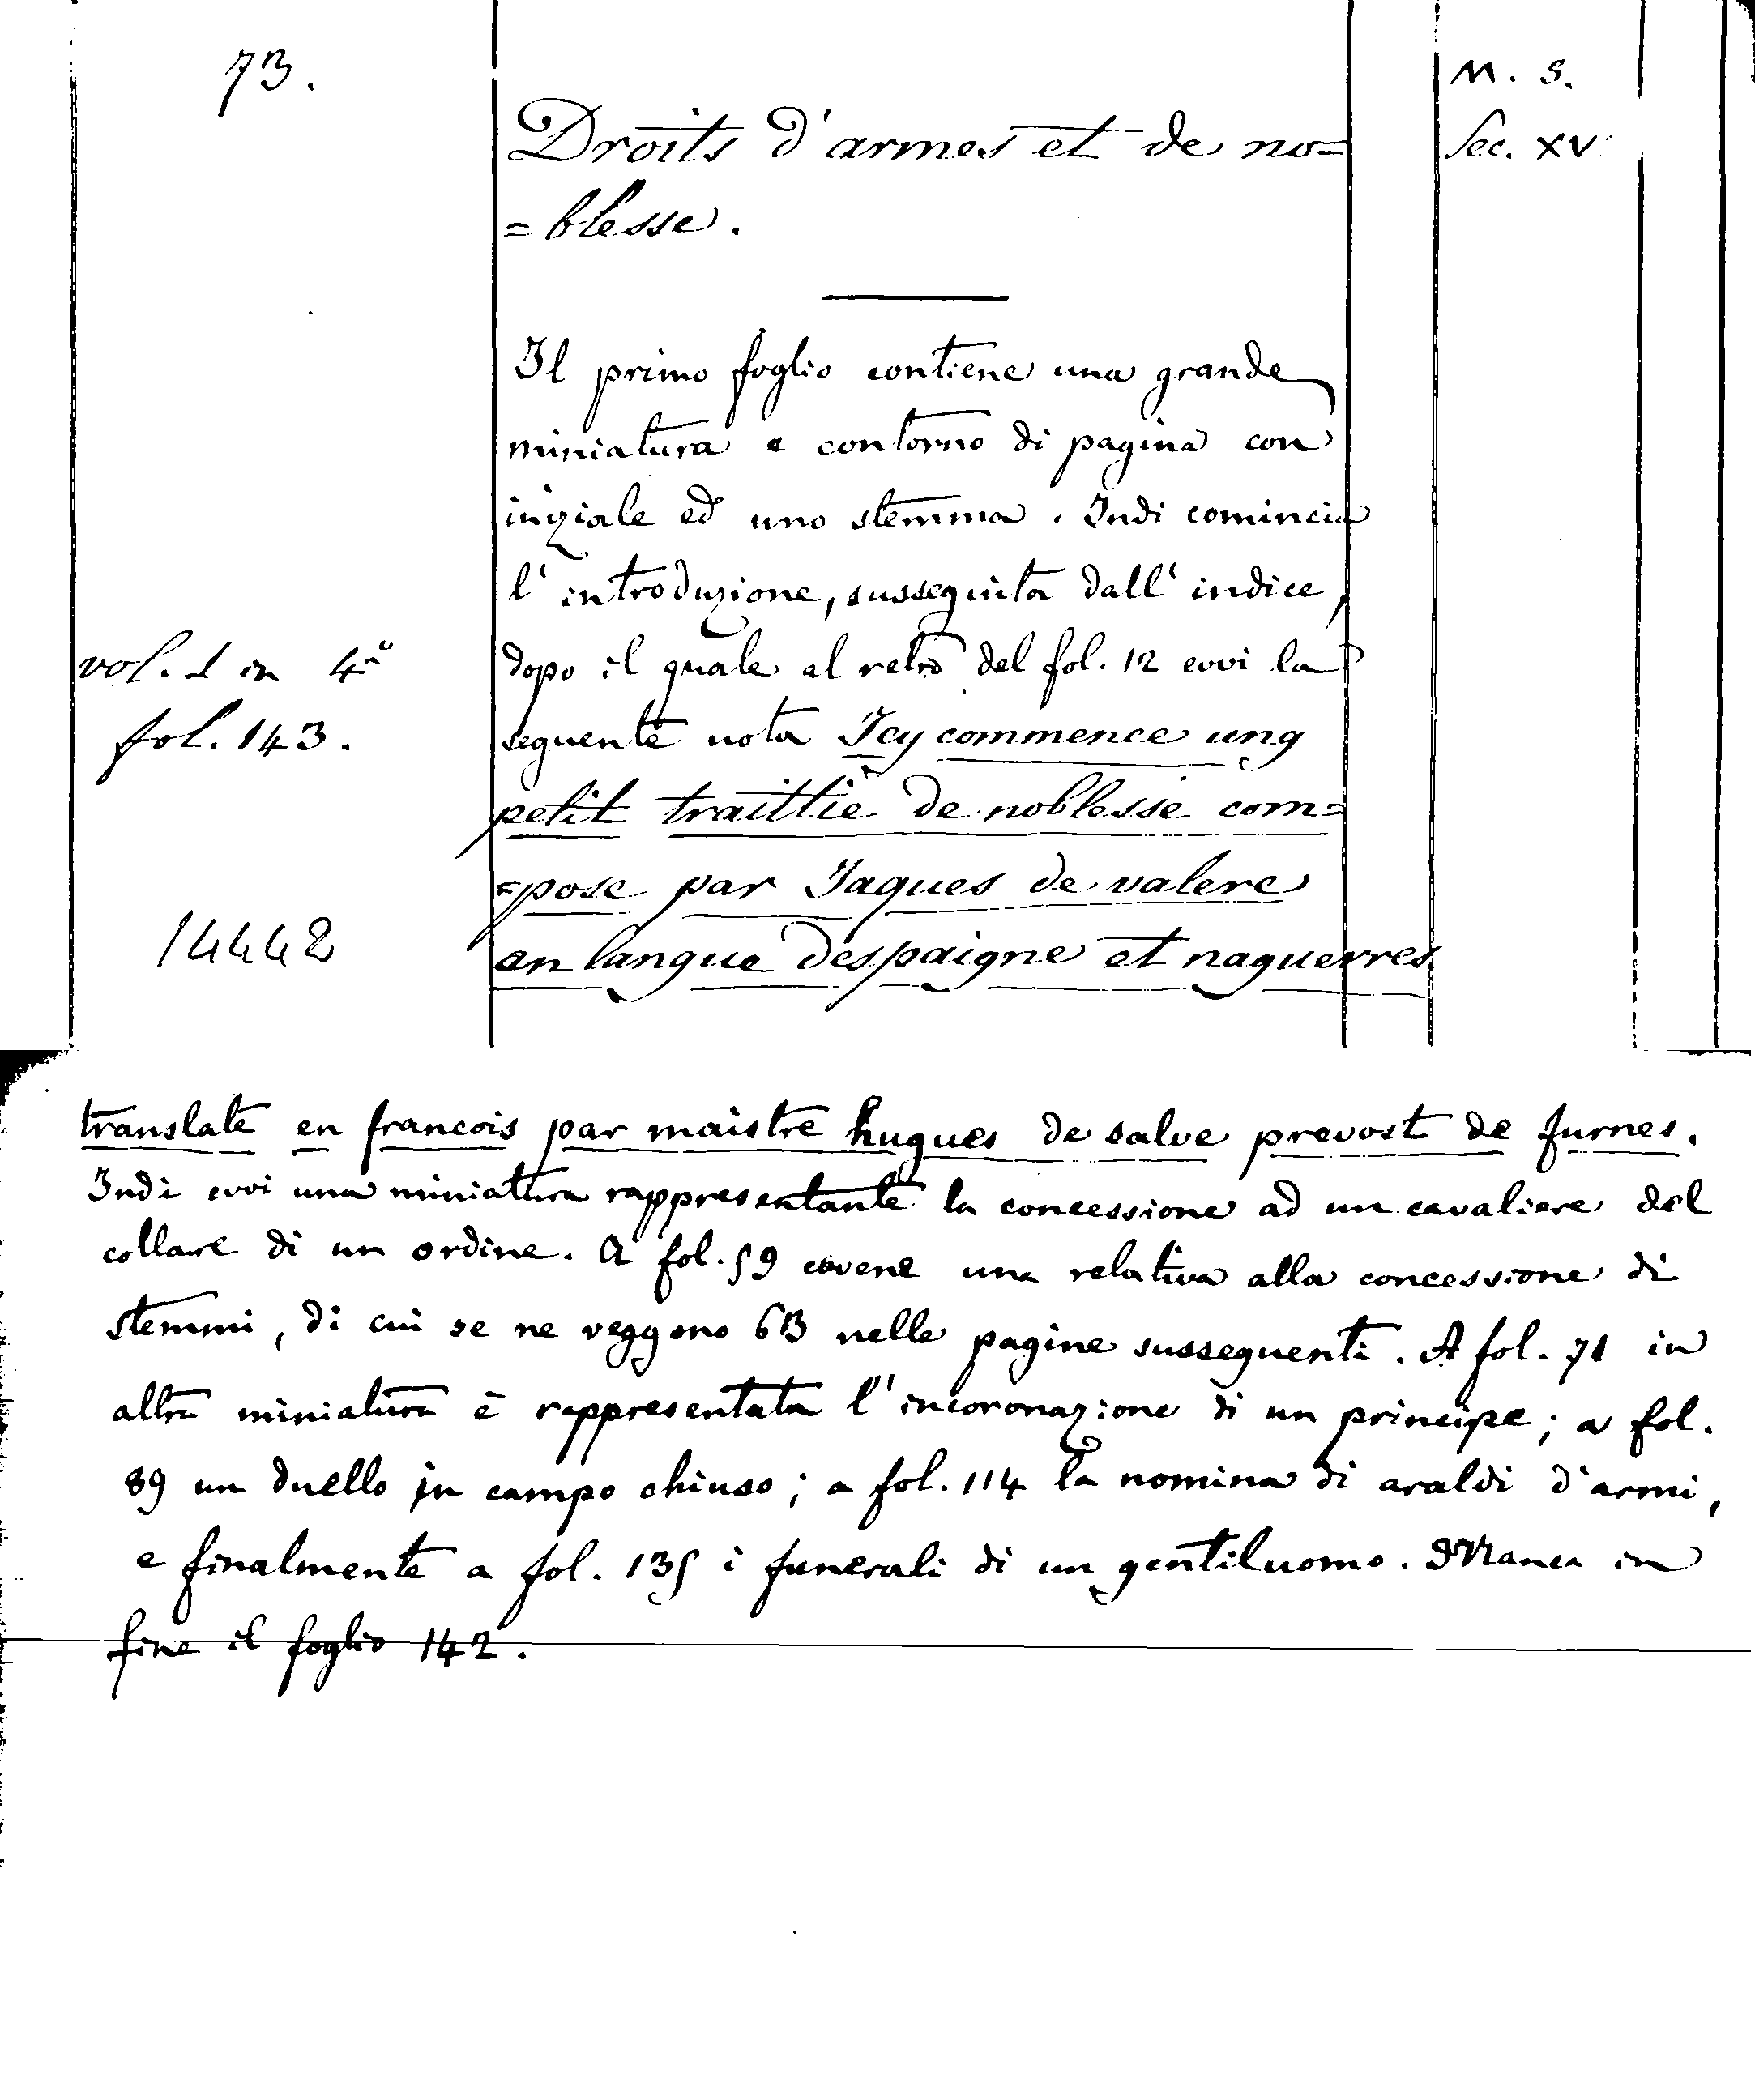 73.
M. S.
Droits d'armes et de no=
Sec. XV
=blesse.
Il primo foglio contiene una grande
miniatura e contorno di pagina con
iniziale ed uno stemma. Indi comincia
l'introduzione, susseguita dall'indice,
vol. 1 in 4º
dopo il quale al retro del fol. 12 evvi la
fol. 143.
seguente nota Icy commence ung
petit traittié de noblesse com=
=pose par Jaques de valere
14442
en langue despaigne et naguerres
translate en francois par maistre hugues de salve prevost de furnes.
Indi evvi una miniatura rappresentante la concessione ad un cavaliere del
collare di un ordine. A fol. 59 evvene una relativa alla concessione di
stemmi, di cui se ne veggono 63 nelle pagine susseguenti. A fol. 71 in
altra miniatura è rappresentata l'incoronazione di un principe; a fol.
89 un duello in campo chiuso; a fol. 114 la nomina di araldi d'armi,
e finalmente a fol. 135 i funerali di un gentiluomo. Manca in
fine il foglio 142.